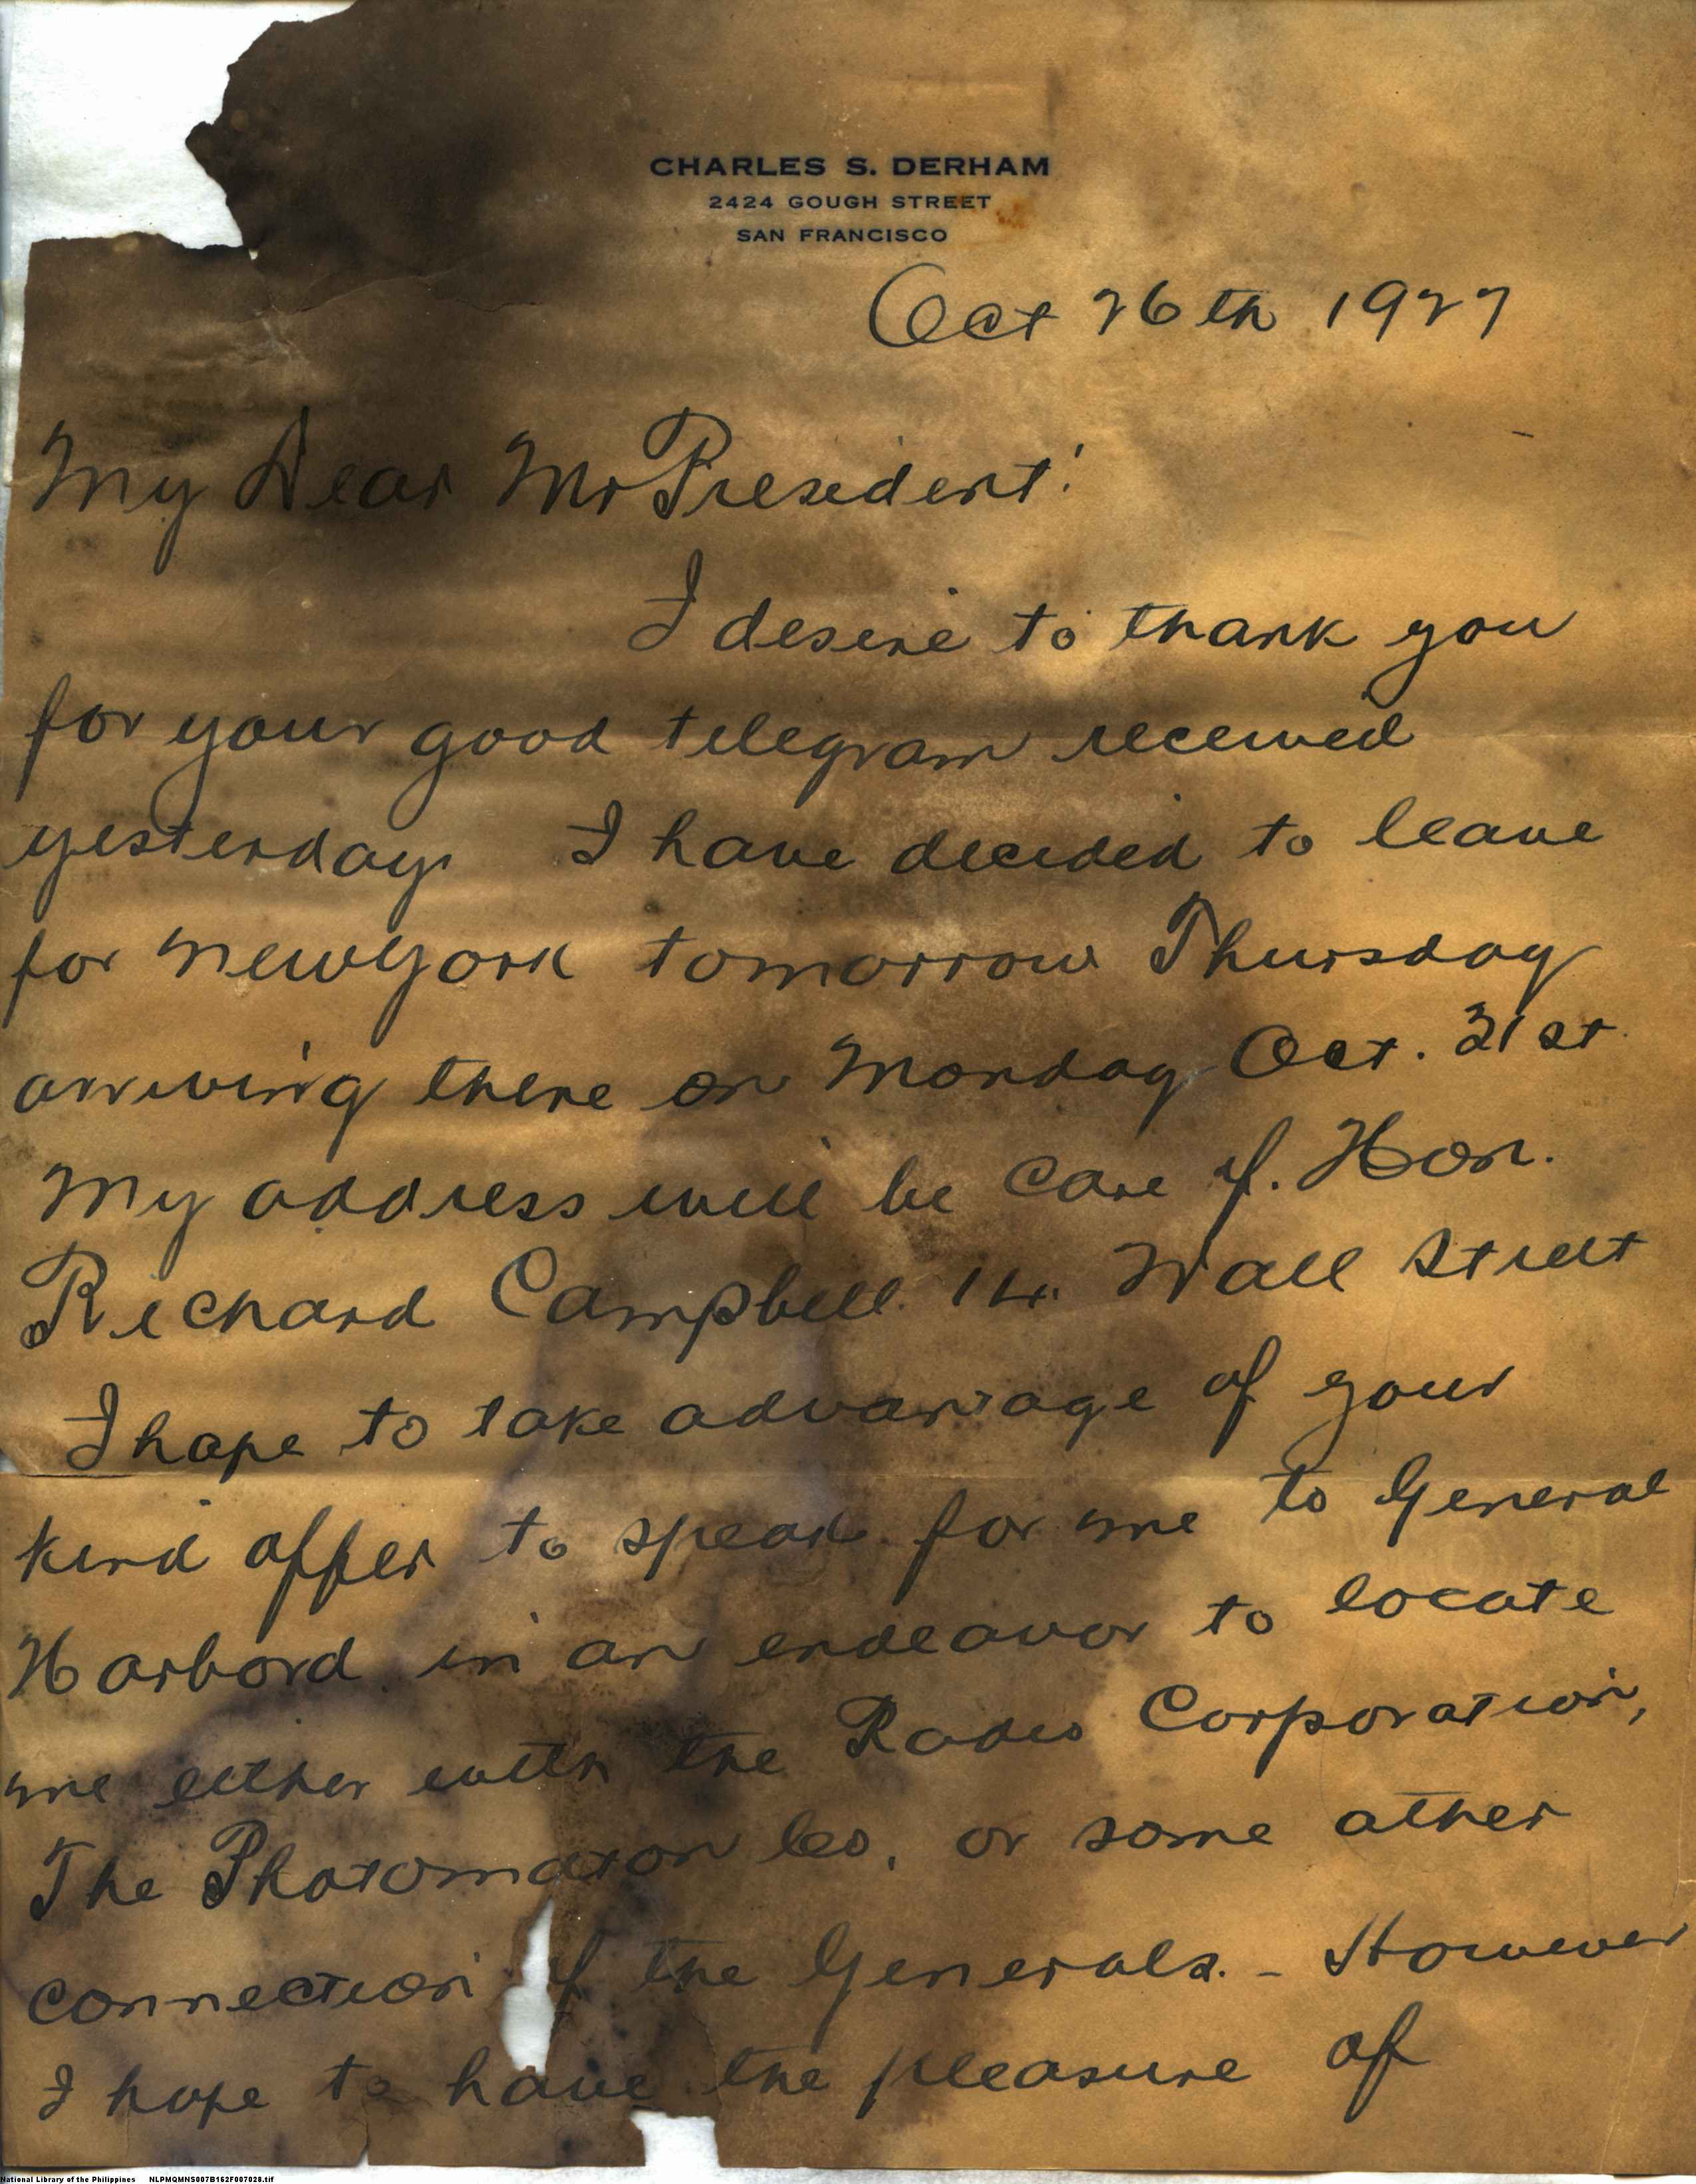 CHARLES S. DERHAM
2424 GOUGH STREET
SAN FRANCISCO
Oct 26th 1927
My Dear Mr President:
I desire to thank you
for your good telegram received
yesterday. I have decided to leave
for New York tomorrow Thursday
arriving there on Monday Oct. 31st
My address will be care of. Hon.
Richard Campbell. 14. Wall Street
I hope to take advantage of your
kind offer to speak for me to General
Harbord in an endeavor to locate
me either with the Radio Corporation,
The Photomaton Co, or some other
connection of the Generals. - However
I hope to have the pleasure of
National Library of the Philippines NLPMQMNS007B162F007028.tif